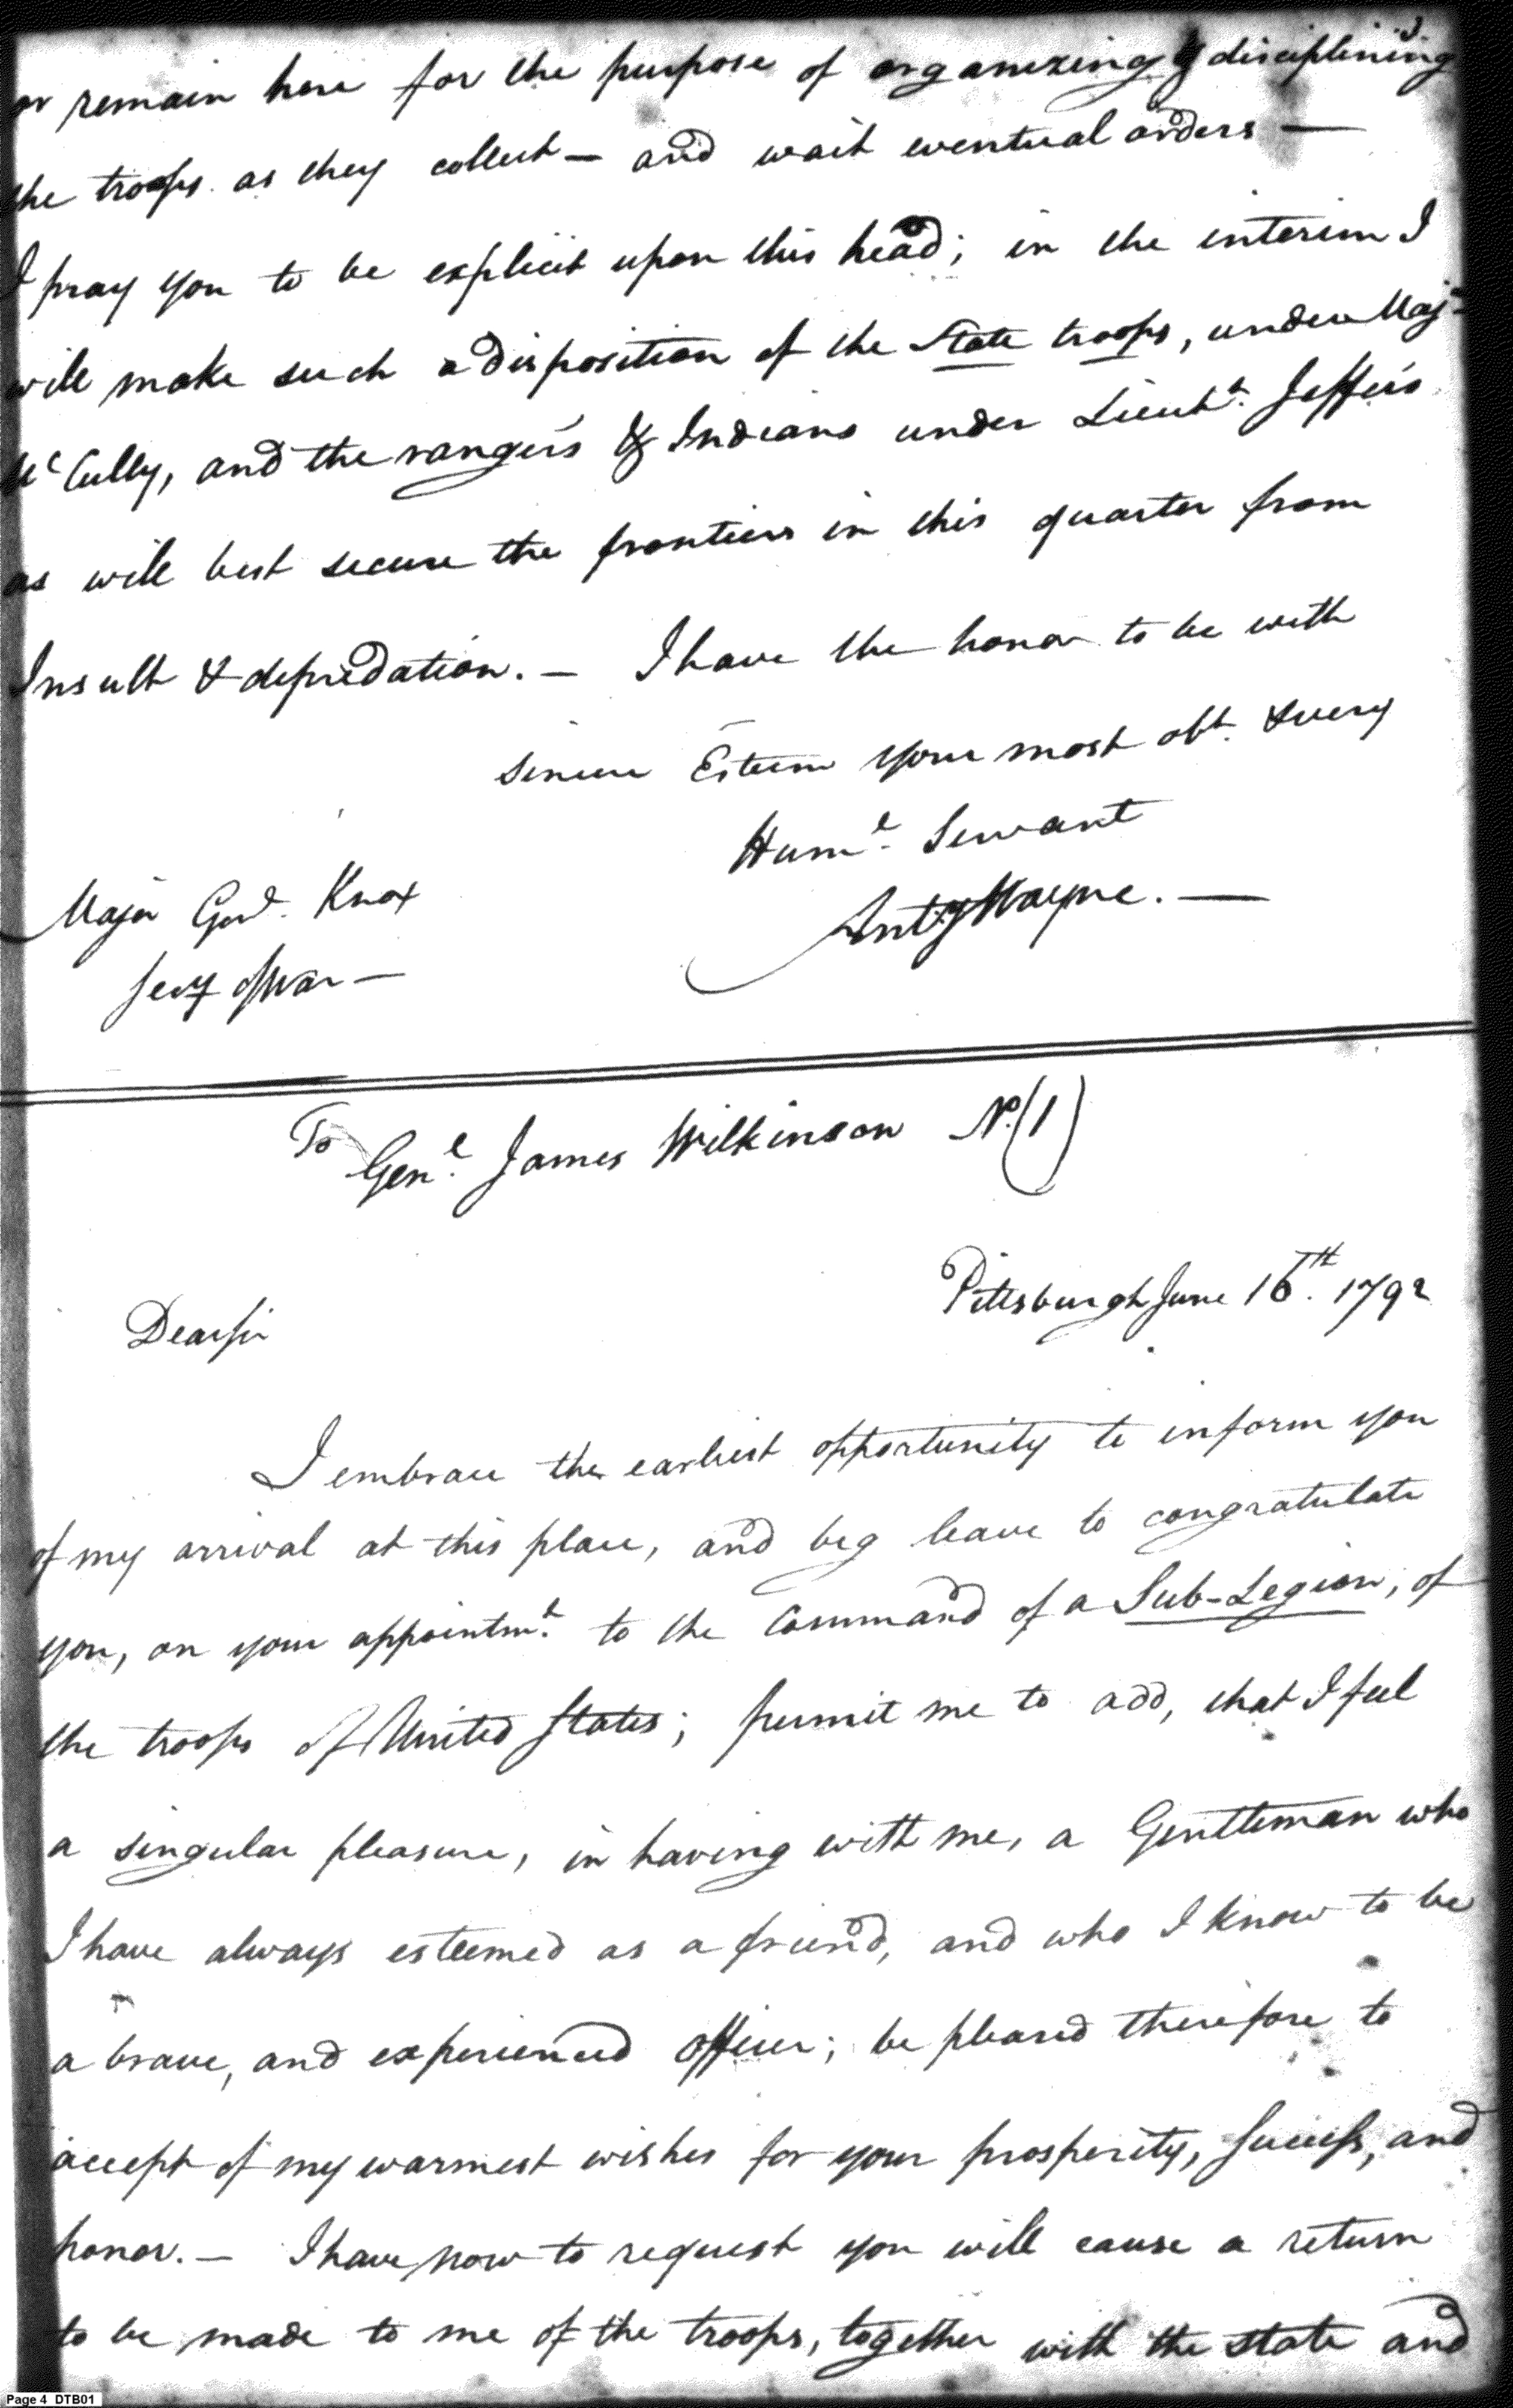 3
or remain here for the purpose of organizing & disciplining
the troops as they collect — and wait eventual orders —
I pray you to be explicit upon this head; in the interim I
will make such a disposition of the State troops, under Majr
McCully, and the rangers & Indians under Lieutt. Jeffers
as will best secure the frontiers in this quarter from
Insult & depredation. — I have the honor to be with
sincere Esteem your most obt. & very
Huml. Servant
Anty Wayne. —
Major Genl. Knox
Secy of War —
To Genl. James Wilkinson No. (1)
Pittsburgh June 16th. 1792
Dear Sir
I embrace the earliest opportunity to inform you
of my arrival at this place, and beg leave to congratulate
you, on your appointmt. to the Command of a Sub-Legion, of
the troops of United States; permit me to add, that I feel
a singular pleasure, in having with me, a Gentleman who
I have always esteemed as a friend, and who I know to be
a brave, and experienced officer; be pleased therefore to
accept of my warmest wishes for your prosperity, Success, and
honor. — I have now to request you will cause a return
to be made to me of the troops, together with the state and
Page 4 DTB01